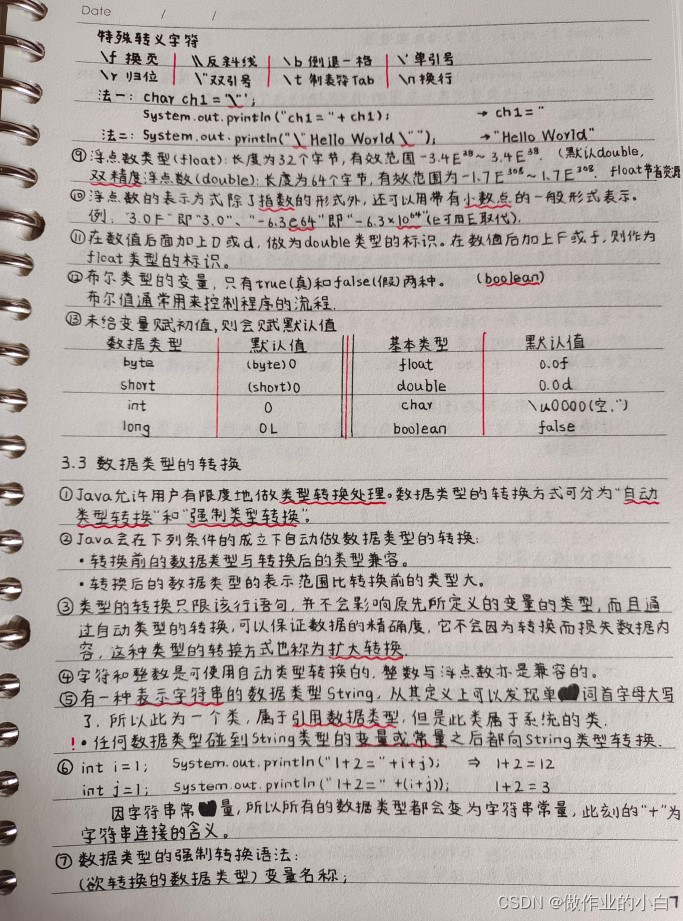 Date / /
特殊转义字符
\f 换页 \\反斜线 \b 倒退一格 \' 单引号
\r 归位 \"双引号 \t 制表符Tab \n 换行
法一: char ch1 = '\"';
System.out.println("ch1="+ch1); → ch1="
法二: System.out.println("\"Hello World\""); →"Hello World"
⑨浮点数类型(float):长度为32个字节,有效范围-3.4E³⁸~3.4E³⁸. (默认double,
双精度浮点数(double):长度为64个字节,有效范围为-1.7E³⁰⁸~1.7E³⁰⁸. float节省资源
⑩浮点数的表示方式除了指数的形式外,还可以用带有小数点的一般形式表示。
例: "3.0F"即"3.0"、"-6.3e64"即"-6.3×10⁶⁴"(e可用E取代).
⑪在数值后面加上D或d,做为double类型的标识。在数值后加上F或f,则作为
float类型的标识。
⑫布尔类型的变量,只有true(真)和false(假)两种。 (boolean)
布尔值通常用来控制程序的流程.
⑬未给变量赋初值,则会赋默认值
数据类型 默认值 基本类型 默认值
byte (byte)0 float 0.0f
short (short)0 double 0.0d
int 0 char \u0000(空,'')
long 0L boolean false
3.3 数据类型的转换
①Java允许用户有限度地做类型转换处理。数据类型的转换方式可分为"自动
类型转换"和"强制类型转换"。
②Java会在下列条件的成立下自动做数据类型的转换:
·转换前的数据类型与转换后的类型兼容。
·转换后的数据类型的表示范围比转换前的类型大。
③类型的转换只限该行语句,并不会影响原先所定义的变量的类型,而且通
过自动类型的转换,可以保证数据的精确度,它不会因为转换而损失数据内
容,这种类型的转换方式也称为扩大转换.
④字符和整数是可使用自动类型转换的,整数与浮点数亦是兼容的。
⑤有一种表示字符串的数据类型String,从其定义上可以发现单词首字母大写
了,所以此为一个类,属于引用数据类型,但是此类属于系统的类.
!·任何数据类型碰到String类型的变量或常量之后都向String类型转换.
⑥ int i=1; System.out.println("1+2="+i+j); ⇒ 1+2=12
int j=1; System.out.println("1+2="+(i+j)); 1+2=3
因字符串常量,所以所有的数据类型都会变为字符串常量,此刻的"+"为
字符串连接的含义。
⑦数据类型的强制转换语法:
(欲转换的数据类型)变量名称;
CSDN @做作业的小白
7